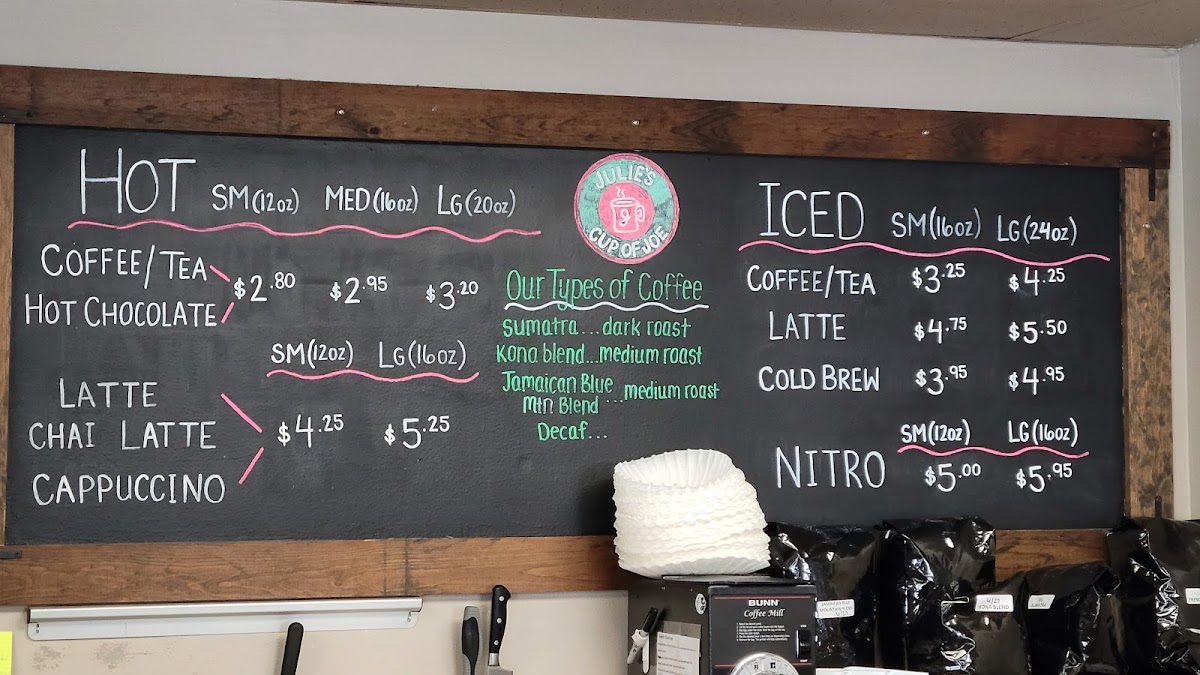 HOT SM(12oz) MED(16oz) LG(20oz)
COFFEE/TEA
HOT CHOCOLATE
$2.80 $2.95 $3.20
SM(12oz) LG(16oz)
LATTE
CHAI LATTE
CAPPUCCINO
$4.25 $5.25
JULIE'S
CUP OF JOE
Our Types of Coffee
Sumatra...dark roast
Kona blend...medium roast
Jamaican Blue
Mtn Blend ...medium roast
Decaf...
ICED SM(16oz) LG(24oz)
COFFEE/TEA $3.25 $4.25
LATTE $4.75 $5.50
COLD BREW $3.95 $4.95
SM(12oz) LG(16oz)
NITRO $5.00 $5.95
BUNN
Coffee Mill
JAMAICAN BLUE
MOUNTAIN BLEND
KONA BLEND